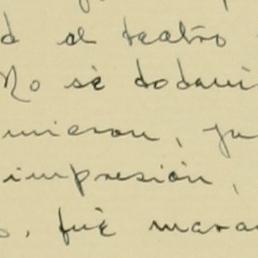 d al teatro
No sé todaví
nieron, ju
impresión,
o, fué marav